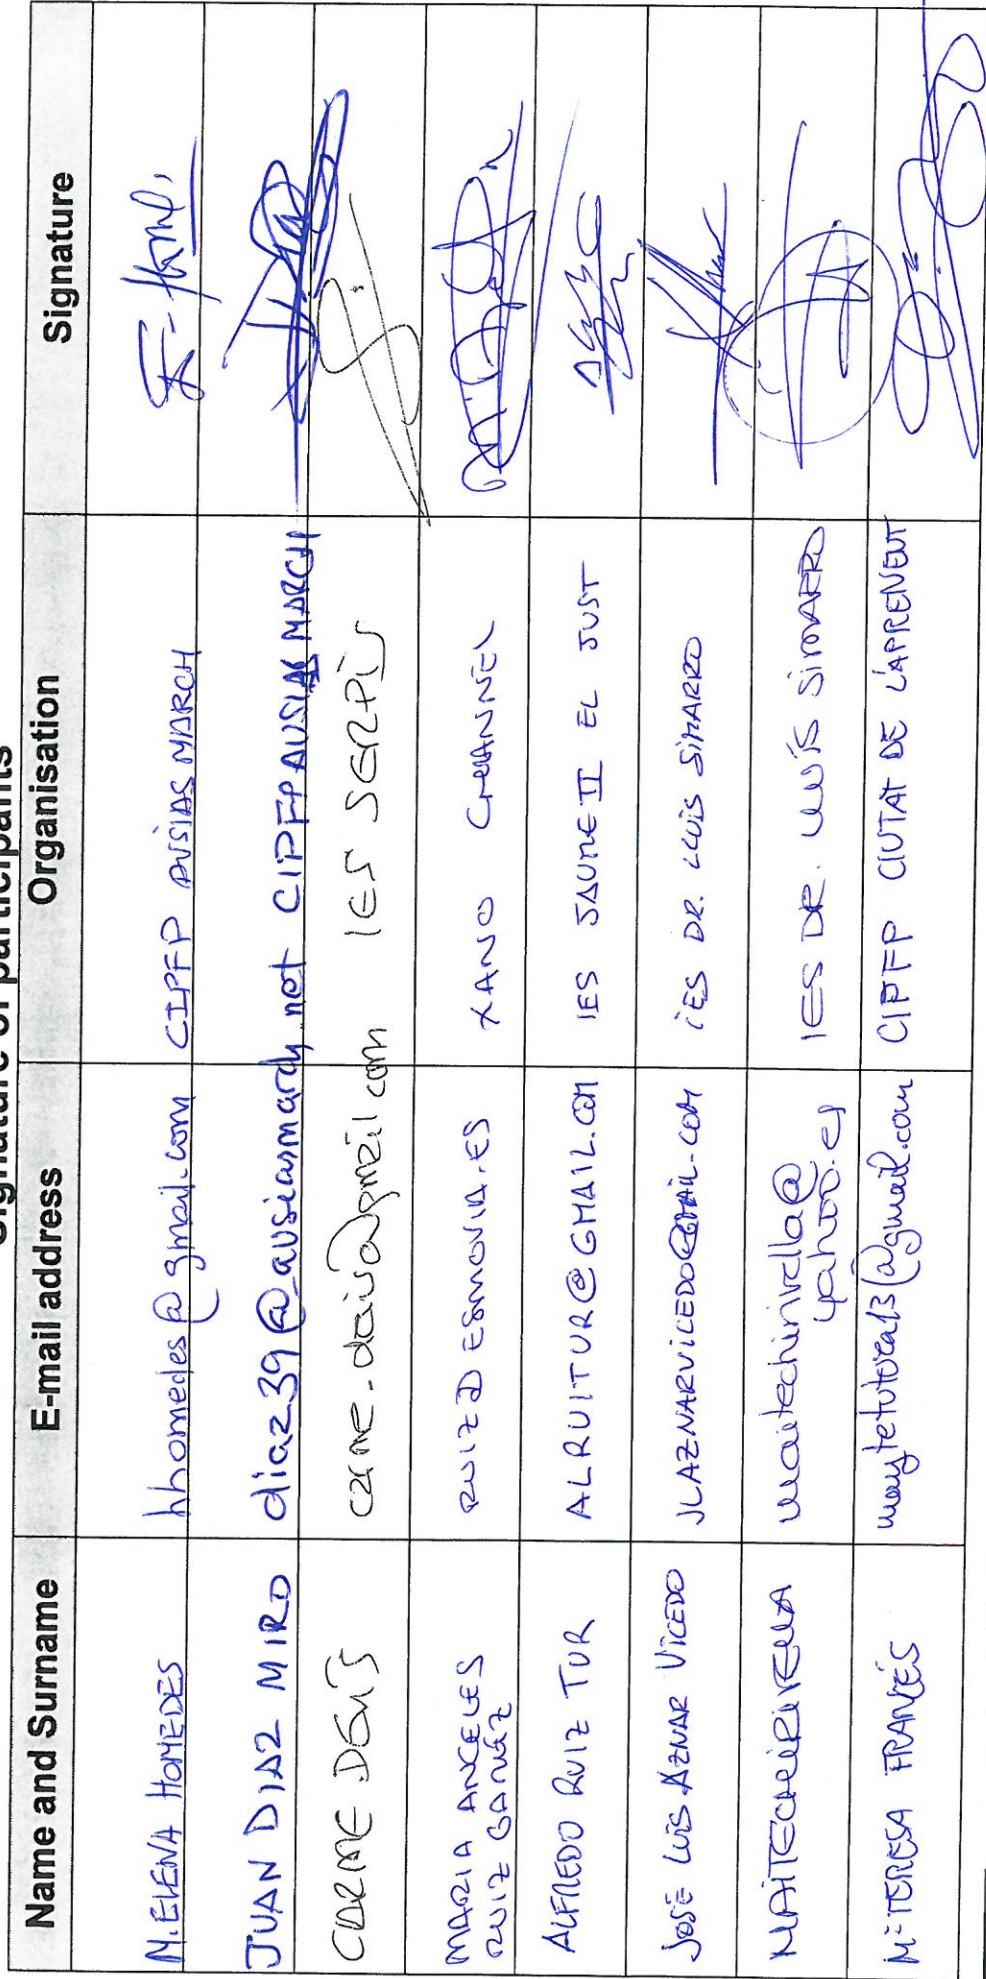 Signature of participants
Name and Surname E-mail address Organisation Signature
M. ELENA HOMEDES hhomedes@gmail.com CIPFP AUSIAS MARCH
JUAN DIAZ MIRO diaz39@ausiasmarch.net CIPFP AUSIAS MARCH
CARME DENIS IES SERPIS
MARIA ANGELES XANO CHANNEL
RUIZ RUIZD@ESMOVIA.ES
ALFREDO RUIZ TUR ALRUITUR@GMAIL.COM IES JAUME II EL JUST
JOSÉ LUIS AZNAR VICEDO JLAZNARVICEDO@GMAIL.COM IES DR. LLUÍS SIMARRO
MAITE CHIRIVELLA maitechirivella@ IES DR. LLUÍS SIMARRO
yahoo.es
Mª TERESA FRANCÉS maytetutora13@gmail.com CIPFP CIUTAT DE L'APRENENT